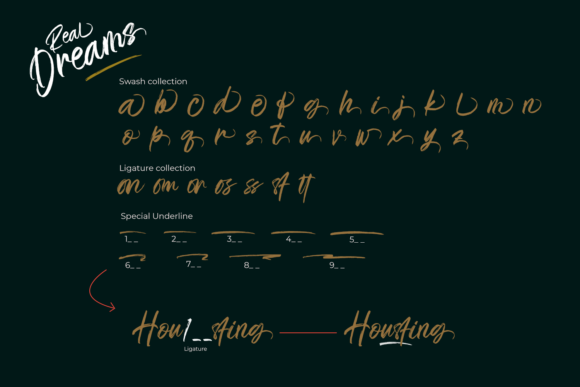 Real
Dreams
Swash collection
a b c d e f g h i j k l m n
o p q r s t u v w x y z
Ligature collection
on om or os ss st tt
Special Underline
1_ _ 2_ _ 3_ _ 4_ _ 5_ _
6_ _ 7_ _ 8_ _ 9_ _
Hou1_ _sting Housting
Ligature